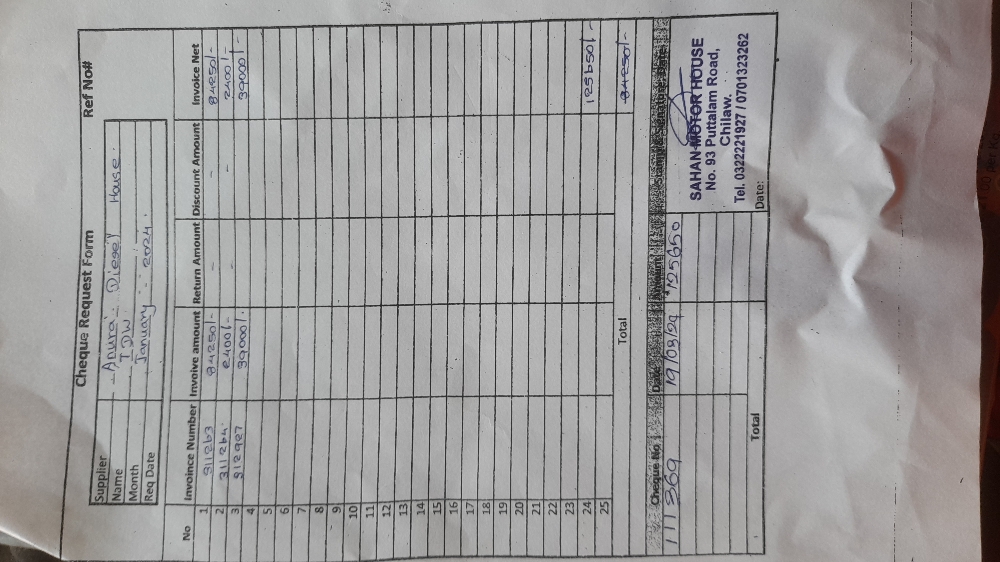 Cheque Request Form
Ref No#
Supplier Anura Diesel House
Name TDW
Month January
Req Date 2024.
No Invoince Number Invoive amount Return Amount Discount Amount Invoice Net
1 311263 84250/- - - 84250/-
2 311264 2400/- - - 2400/-
3 312927 39000/- 39000/-
4
5
6
7
8
9
10
11
12
13
14
15
16
17
18
19
20
21
22
23
24 125650/-
25
Total 84250/-
Cheque No. Date Amount Stamp & Signature, Date
11 369 19/03/24 125650
SAHAN MOTOR HOUSE
No. 93 Puttalam Road,
Chilaw.
Tel. 0322221927 / 0701323262
Total Date: